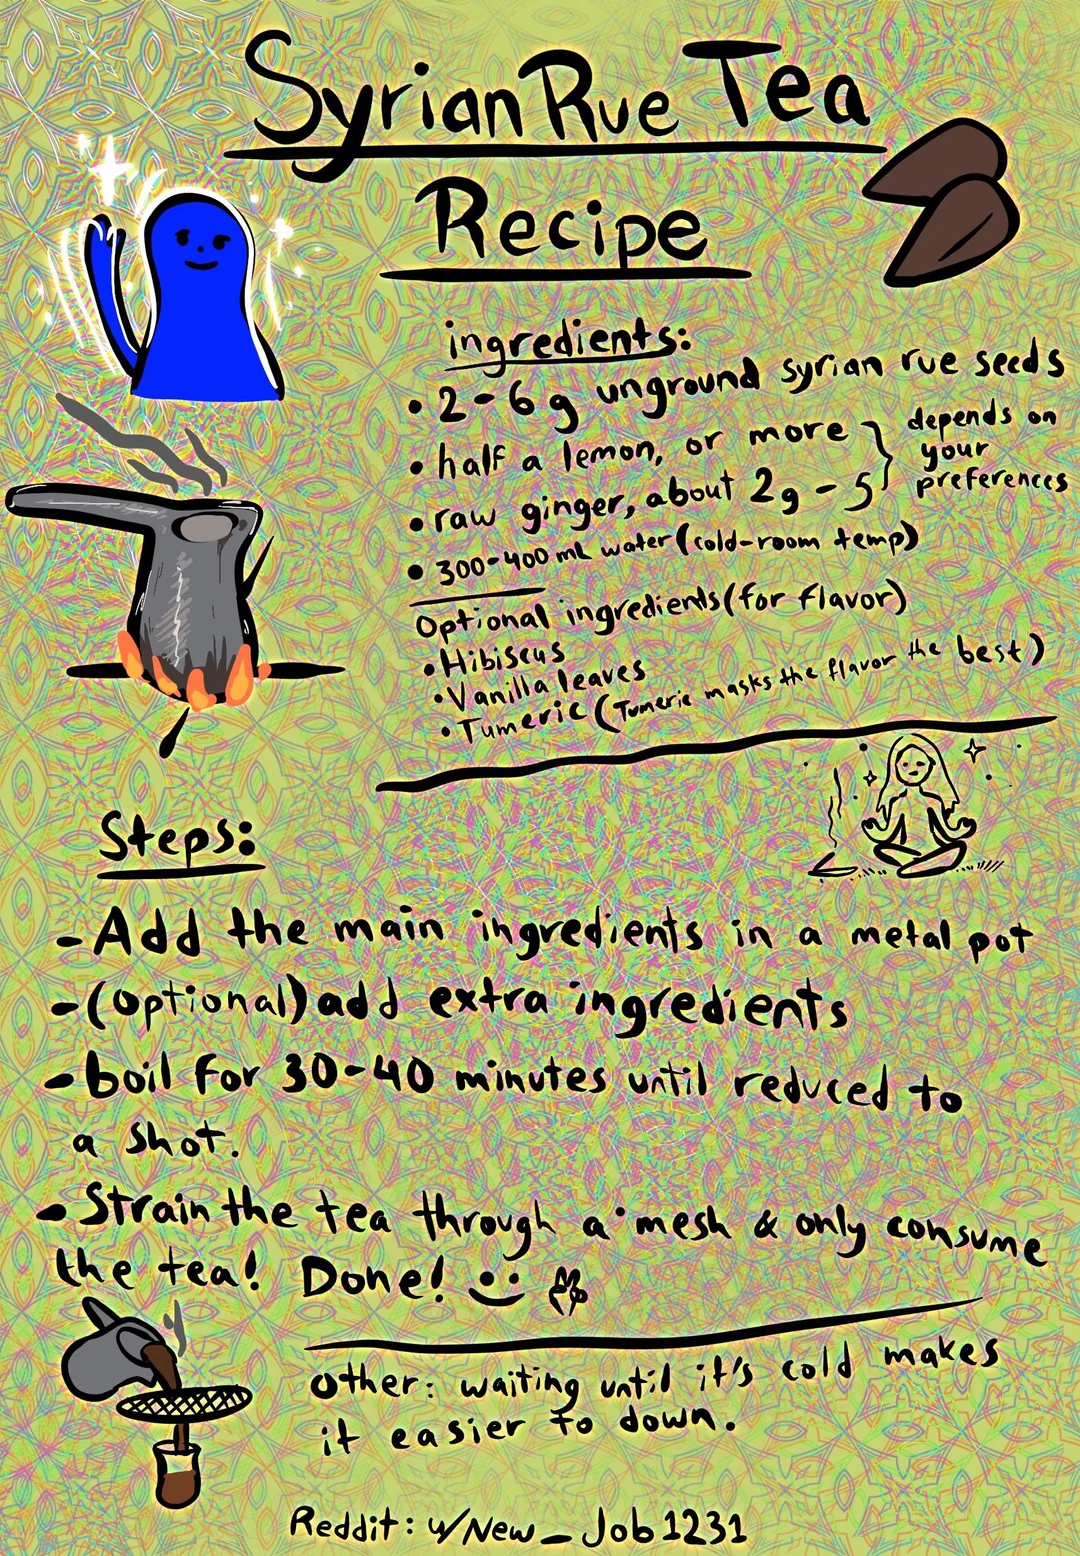 Syrian Rue Tea
Recipe
ingredients:
• 2-6g unground syrian rue seeds
• half a lemon, or more
• raw ginger, about 2g-5
} depends on
your
preferences
• 300-400mL water (cold-room temp)
Optional ingredients (for flavor)
• Hibiscus
• Vanilla leaves
• Tumeric (Tumeric masks the flavor the best)
Steps:
- Add the main ingredients in a metal pot
- (Optional) add extra ingredients
- boil for 30-40 minutes until reduced to
a shot.
- Strain the tea through a mesh & only consume
the tea! Done!
Other: waiting until it's cold makes
it easier to down.
Reddit: u/New_Job1231